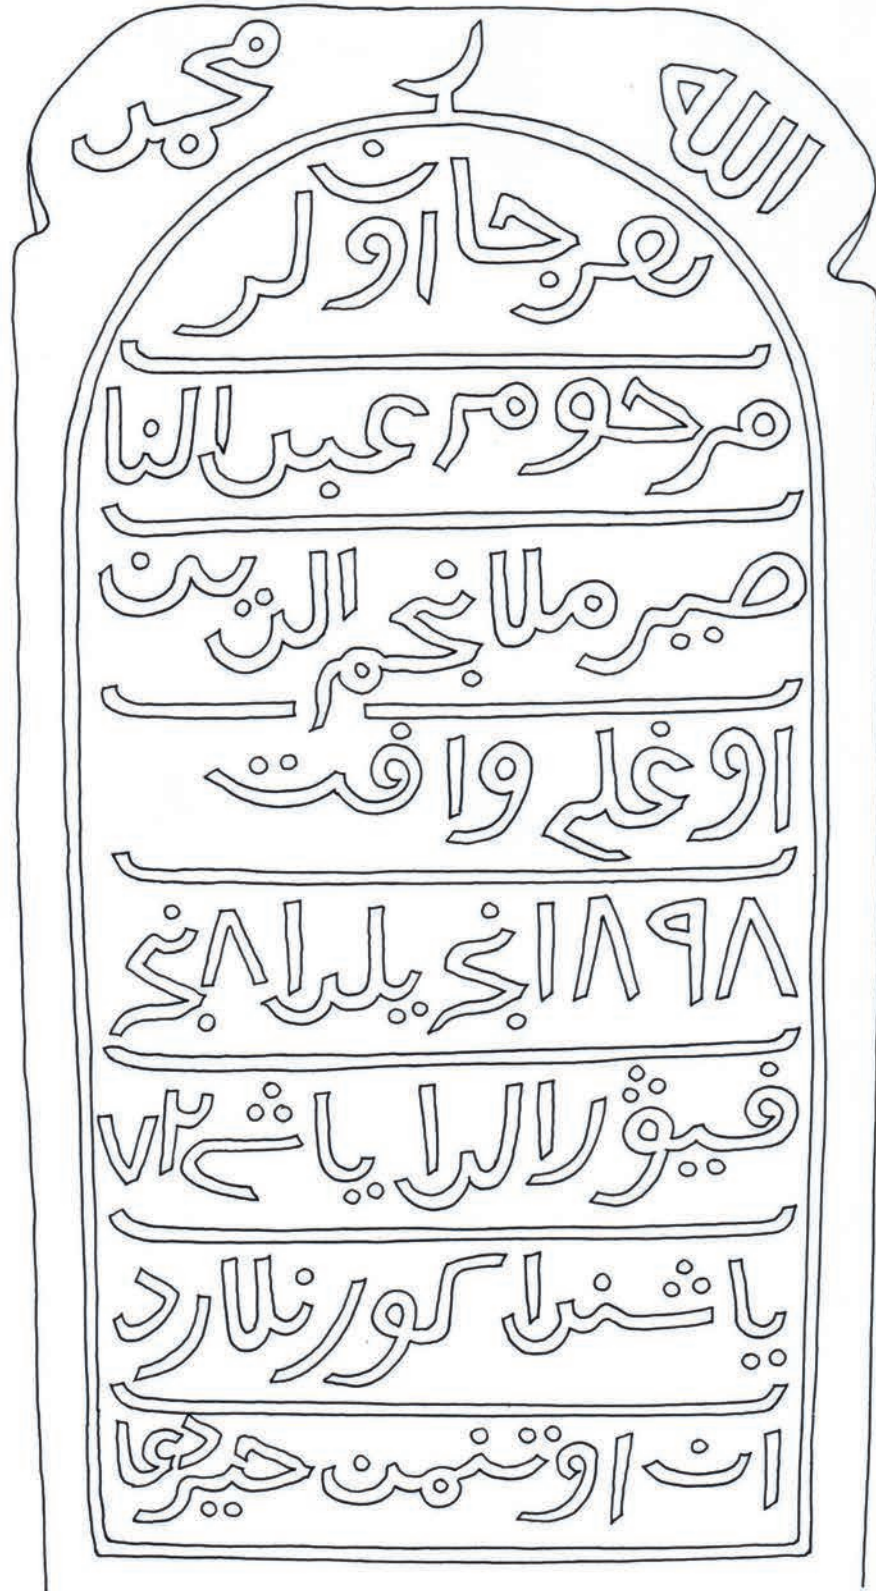 الله محمد
بهر جان اولر
مرحوم عبد النا
صير ملا نجم الدين
اوغلي وافت
١٨٩٨ انجي يلدا ٨ نجي
فيوڭرالدا ياشے ٧٢
ياشندا كورنلارد
ان اوتنمن خير دعا